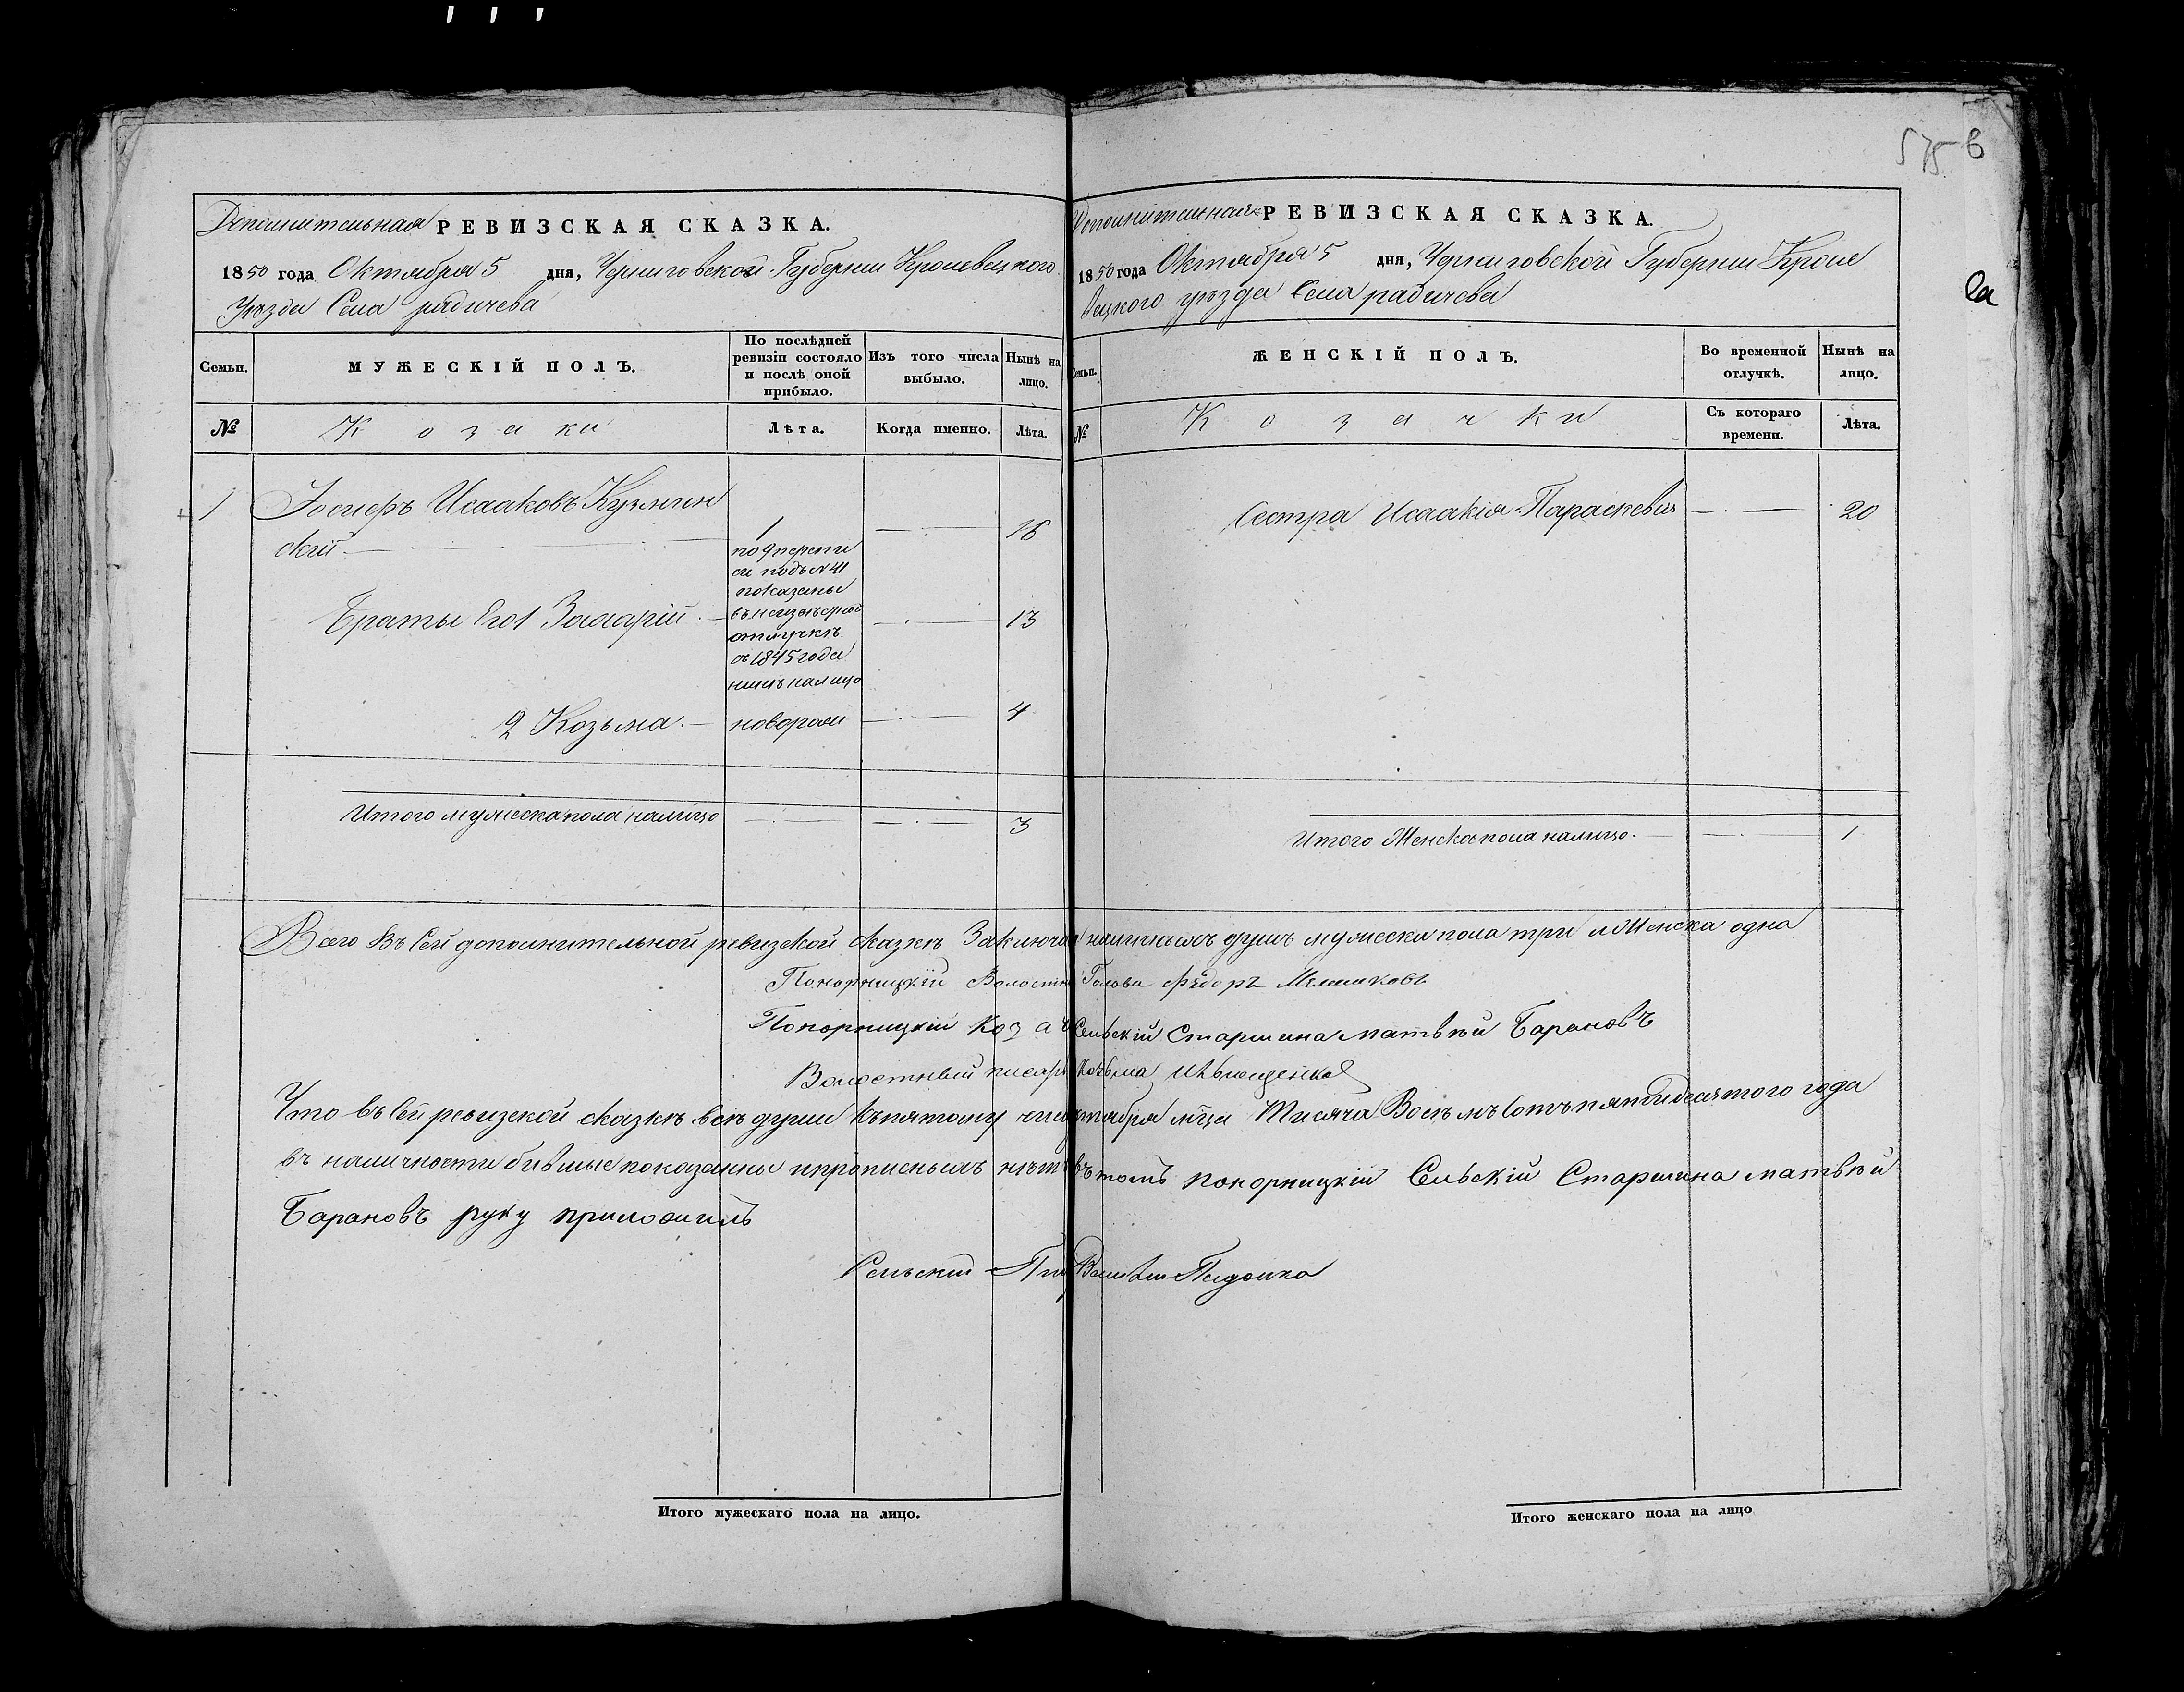 575 в
2а
Дополнительная РЕВИЗСКАЯ СКАЗКА.
1850 года Октября 5 дня, Черниговской Губернии Кролевецкого
Уезда Села радичева
Семьи.
МУЖЕСКІЙ ПОЛЪ.
По послѣдней ревизіи состояло и послѣ оной прибыло.
Изъ того числа выбыло.
Нынѣ на лицо.
№
Козаки
Лѣта.
Когда именно.
Лѣта.
1 Иосифъ Исааковъ Кузмин
ский. 1 16
по 9 перепи
си подъ N 41
показаны
въ неизвѣсной
отлучкѣ
съ 1845 года
нинѣ налицо
Браты Его 1 Захарій 13
2 Козьма новорож 4
Итого мужеска пола налицо 3
Дополнительная РЕВИЗСКАЯ СКАЗКА.
1850 года Октября 5 дня, Черниговской Губернии Кроле
вецкого уѣзда Села радичева
Семьи.
ЖЕНСКІЙ ПОЛЪ.
Во временной отлучкѣ.
Нынѣ на лицо.
№
Козачки
Съ котораго времени.
Лѣта.
Сестра Исаакія Параскевия 20
Итого Женска пола налицо. 1
Всего Въ Сей дополнительной ревизской сказкѣ Заключа наличныхъ душъ мужеска пола три и Женска одна
Понорницкій Волостн Голова Федоръ
Понорницкій Козач Сельскій Старшина матвѣй Барановъ
Волостный писарь Козьма
Что въ Сей ревизской сказкѣ всѣ души къ пятому тября мца Тисяча Восѣмъ Сотъ пятидесятого года
въ наличности бившые показанны и прописныхъ нѣтъ въ томъ понорницкій Сельскій Старшина матвѣй
Барановъ руку приложилъ
Сельскій
Итого мужескаго пола на лицо.
Итого женскаго пола на лицо